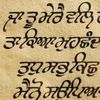 ਜਾ ਤੂ ਮੇਰੈ ਵਲਿ
ਤਾ ਕਿਆ ਮੁਹਛੰਦਾ
ਤੁਧੁ ਸਭੁ ਕਿਛੁ
ਮੈਨੋ ਸਉਪਿਆ